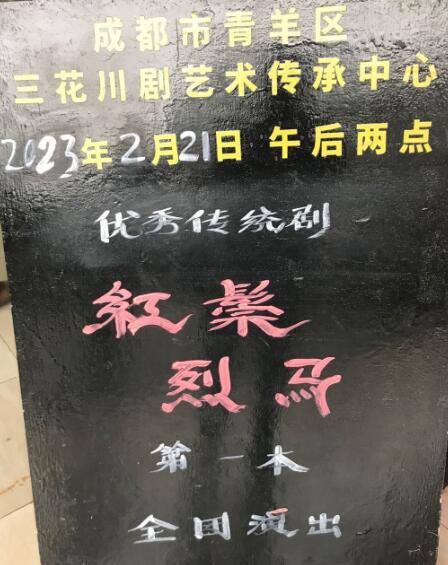 成都市青羊区
三花川剧艺术传承中心
2023年2月21日 午后两点
优秀传统剧
紅鬃
烈马
第一本
全团演出